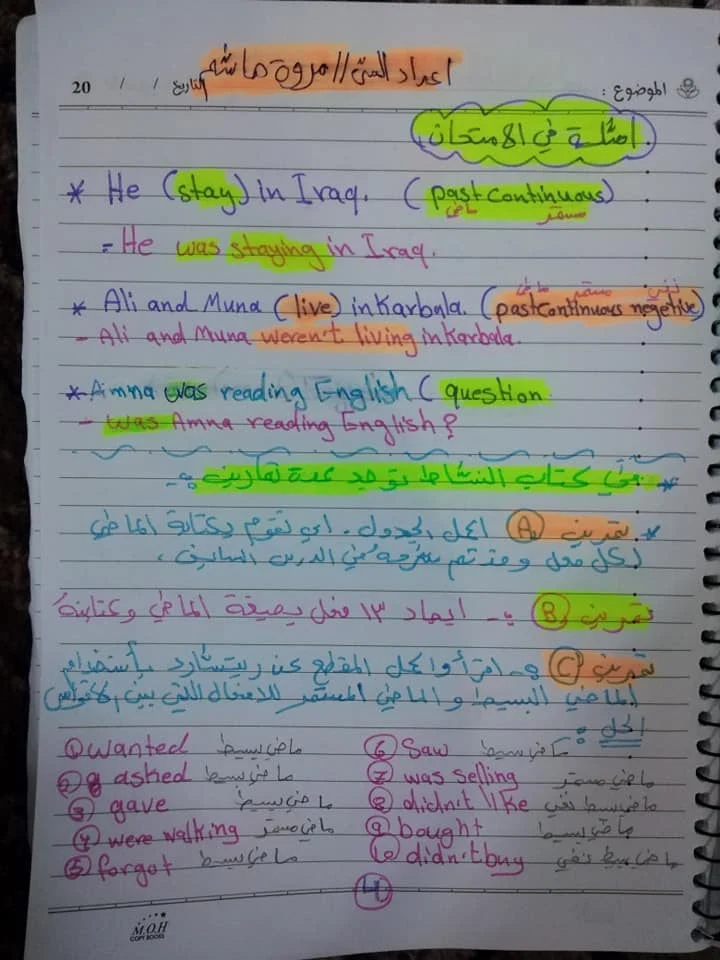 اعداد الست // مروة هاشم
الموضوع : التاريخ / / 20
امثلة في الامتحان
* He (stay) in Iraq. (past continuous)
ماضي مستمر
= He was staying in Iraq.
ماضي مستمر نفي
* Ali and Muna (live) in Karbala. (past continuous negetive)
- Ali and Muna weren't living in Karbala.
* Amna was reading English ( question
- Was Amna reading English ?
* في كتاب النشاط توجد عدة تمارين :-
* تمرين (A) اكمل الجدول . اي تقوم بكتابة الماضي
لكل فعل وقد تم شرحه في الدرس السابق .
تمرين (B) :- ايجاد ١٣ فعل بصيغة الماضي وكتابته
تمرين (C) :- اقرأ واكمل المقطع عن ريتشارد بأستخدام
الماضي البسيط والماضي المستمر للافعال التي بين الاقواس
الحل :
① wanted ماضي بسيط
② asked ماضي بسيط
③ gave ماضي بسيط
④ were walking ماضي مستمر
⑤ forgot ماضي بسيط
⑥ Saw ماضي بسيط
⑦ was selling ماضي مستمر
⑧ didn't like ماضي بسيط نفي
⑨ bought ماضي بسيط
⑩ didn't buy ماضي بسيط نفي
4
M.O.H
COPY BOOKS